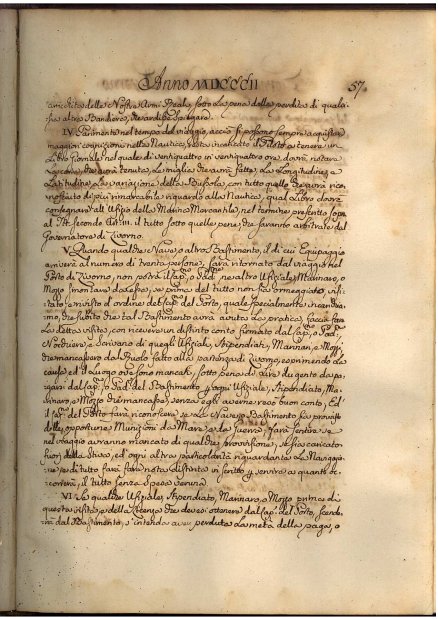 Anno MDCCCII
57.
arricchita delle Nostre Armi Reali, sotto la pena della perdita di quals:
sia altra Bandiera, che ardisse spiegare.
IV. Parimente nel tempo del viaggio, acciò si possono sempre acquistar
maggiori cognizioni nella Nautica, resta incaricato il Piloto a tenere un
Libro Giornale nel quale di ventiquattro in ventiquattro ore, dovrà notare
la che avrà tenuta, le miglia che avrà fatte, la Longitudine, e
Latitudine, la variazione della Bussola, con tutto quello che avrà rico:
nosciuto di più rimarcabile riguardo alla Nautica, qual Libro dovrà
consegnare all' Ufizio della Marina Mercantile, nel termine prescritto sopra
al Tit. secondo il tutto sotto quelle pene, che saranno arbitrate dal
Governatore di Livorno.
V. Quando qualche Nave, o altro Bastimento, il di cui Equipaggio
arriverà al numero di trenta persone, sarà ritornato dal viaggio nel
Porto di Livorno, non potrà il Cap.o, o Pad.ne, ne altro Ufiziale, Marinaro, o
Mozzo smontare da esso, se prima del tutto non sia ormeggiato, visi:
tato, e rivisto d'ordine del Cap.o del Porto, quale specialmente incarichia:
mo, che subito che tal Bastimento avrà avuta la pratica, faccia far
la detta visita, con ricevere un distinto conto firmato dal Cap.o, o Pad.ne,
Nocchiere, e Scrivano di quegli Ufiziali, Stipendiati, Marinari, e Mozzi
che mancassero dal Ruolo fatto alla partenza di Livorno, esprimendo la
causa, ed il Luogo ove sono mancati, sotto pena di Lire dugento da pa:
garsi dal Cap.o, o Pad.ne del Bastimento per ogni Ufiziale, Stipendiato, Ma:
rinaro, o Mozzo che mancasse, senza egli averne reso buon conto; Ed
il Cap.o del Porto farà riconoscere se la Nave, o Bastimento sia provvisto
delle opportune Munizioni da Mare, e da Guerra, farà sentire se
nel viaggio avranno mancato di qualche provvisione, se sia caricato
fuori della Stiva, ed ogni altra particolarità riguardante la Navigazio:
ne, e di tutto farà far nota distinta in scritto per servire a quanto oc:
correrà, il tutto senza spesa veruna.
VI. Se qualche Ufiziale, Stipendiato, Marinaro, o Mozzo prima di
questa visita, e della licenza che dovrà ottenere dal Cap.o del Porto, scende:
rà dal Bastimento, s'intenda aver perduta la metà della paga, o